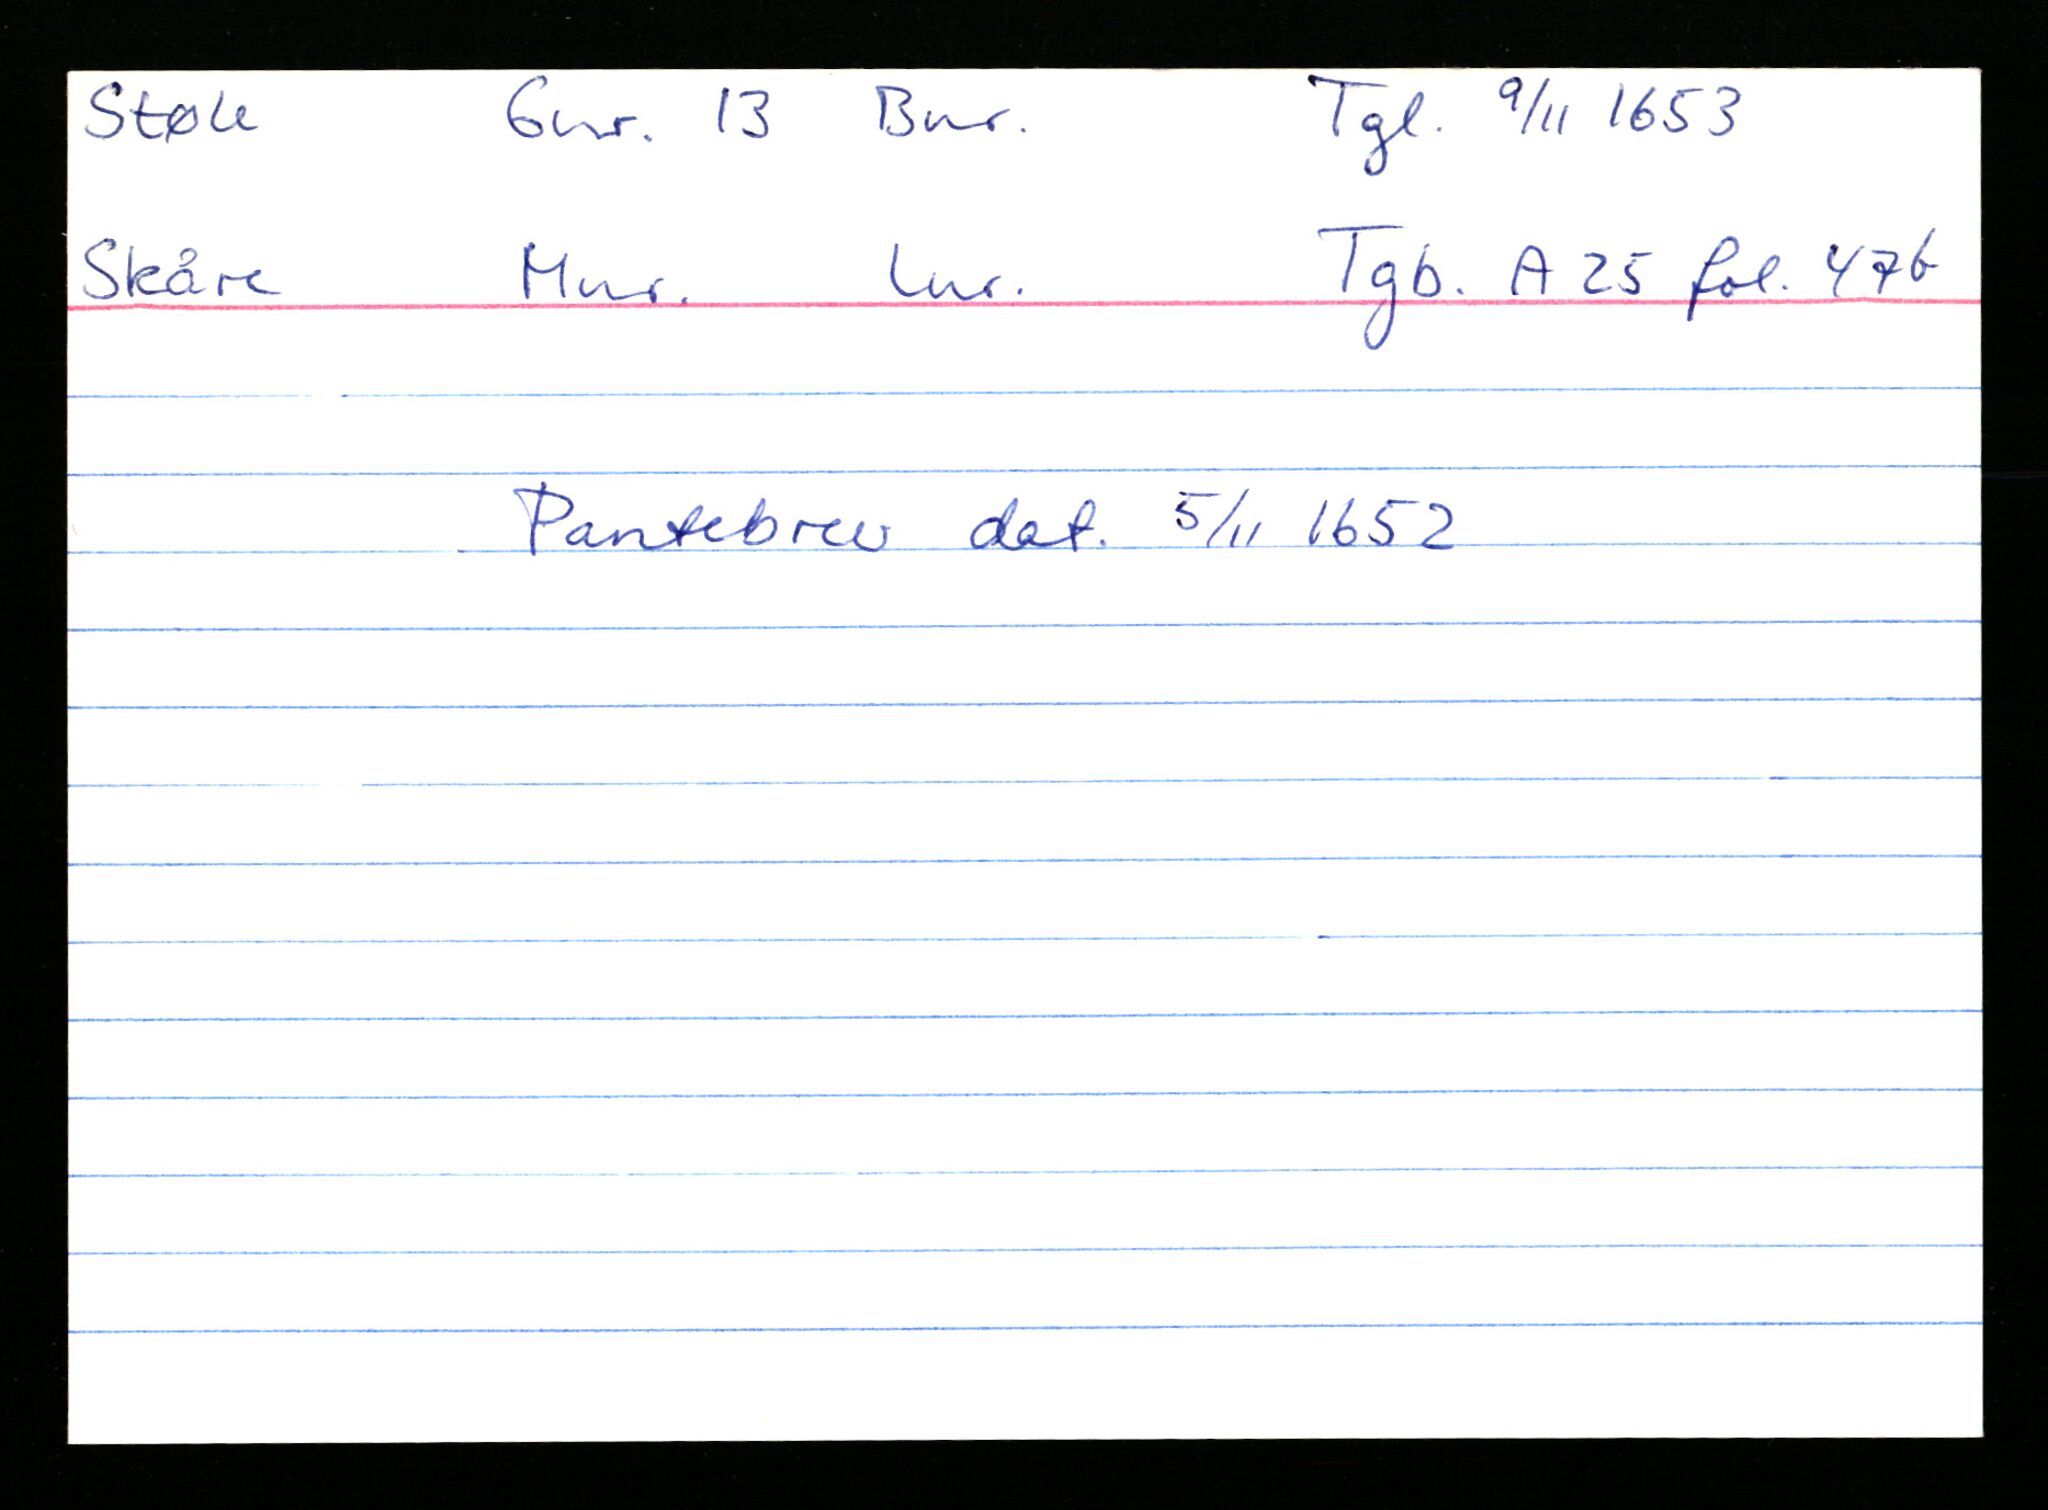 Støle Gnr. 13 Bnr. Tgl. 9/11 1653
Skåre Mnr. Lnr. Tgb. A 25 fol. 47b
Pantebrev dat. 5/11 1652